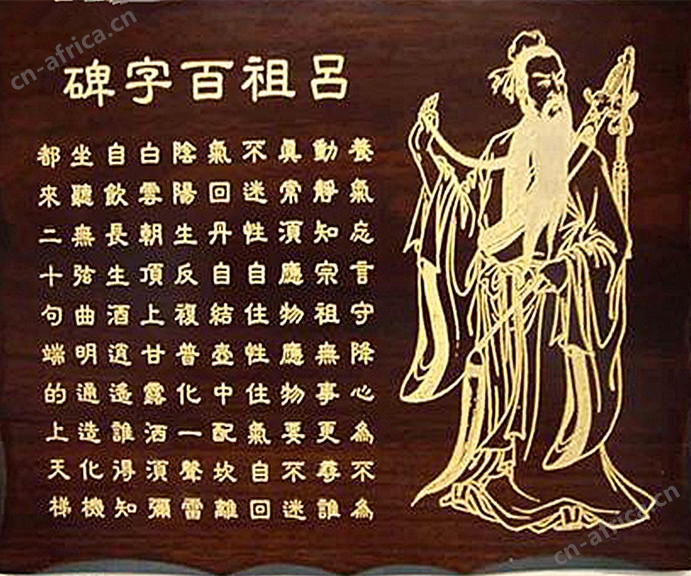 呂祖百字碑
養氣忘言守降心為不為
動靜知宗祖無事更尋誰
真常須應物應物要不迷
不迷性自住性住氣自回
氣回丹自結壺中配坎離
陰陽生反複普化一聲雷
白雲朝頂上甘露洒須彌
自飲長生酒逍遙誰得知
坐聽無弦曲明通造化機
都來二十句端的上天梯
cn-africa.cn
cn-africa.cn